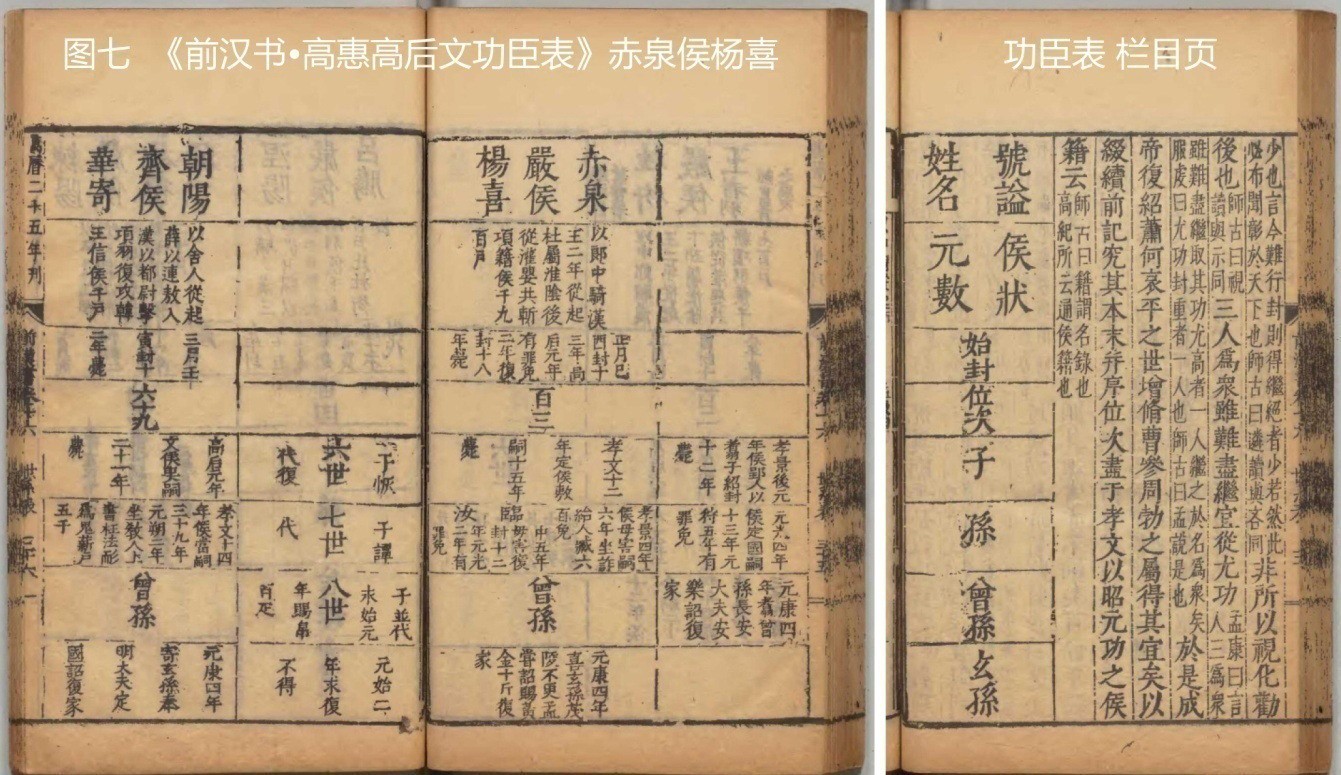 图七 《前汉书•高惠高后文功臣表》赤泉侯杨喜
孝景後元
年侯郢人以
翕子紹封
十二年
薨
侯定國嗣
十三年元
狩五年有
罪免
元康四
年翕曾
孫長安
大夫安
樂詔復
家
赤泉
嚴侯
楊喜
以郎中騎漢
王二年從起
杜屬淮陰後
從灌嬰共斬
項籍侯千九
百戶
正月巳
酉封十
三年高
后元年
有罪免
二年復
封十八
年薨
百三
孝文十二
年定侯敷
嗣十五年
薨
孝景四年
侯毋害嗣
六年坐詐
紿人臧六
百免
臨
汝
中五年
毋害復
封十二
年元光
二年有
罪免
曾孫
元康四年
喜玄孫茂
陵不更孟
嘗詔賜黃
金十斤復
家
子恢
六世
代復
子譚
七世
代
子並代
永始元
八世
年賜帛
百疋
元始二
年求復
不得
朝陽
齊侯
華寄
以舍人從起
薛以連敖入
漢以都尉擊
項羽復攻韓
王信侯千戶
三月壬
寅封十
二年薨
六十九
高后元年
文侯要嗣
二十一年
薨
孝文十四
年侯當嗣
三十九年
元朔二年
坐敎人上
書枉法耐
爲鬼薪戶
五千
曾孫
元康四年
寄玄孫奉
明大夫定
國詔復家
萬曆二十五年刊
前漢書卷十六
功臣表 栏目页
少也言今難行封則得繼絕者少若然此
必布聞彰於天下也師古曰遴讀與吝同
非所以視化勸
後也
師古曰視
讀與示同
三人爲衆雖難盡繼宜從尤功
孟康曰言
人三爲衆
雖難盡繼取其功尤高者一人繼之於名爲衆矣
服虔曰尤功封重者一人也師古曰孟說是也
於是成
帝復紹蕭何哀平之世增脩曹參周勃之屬得其宜矣以
綴續前記究其本末并序位次盡于孝文以昭元功之侯
籍云
師古曰籍謂名錄也
高紀所云通侯籍也
號謚
姓名
侯狀
元數
始封
位次
子
孫
曾孫
玄孫